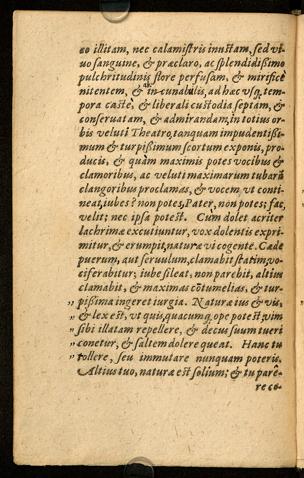 eo illitam, nec calamistris inustam, sed vi-
uo sanguine, & præclaro, ac splendidißimo
pulchritudinis flore perfusam, & mirificè
nitentem, & in cunabulis, ad hæc vsq, tem-
pora castè, & liberali custodia septam, &
conseruatam, & admirandam, in totius or-
bis veluti Theatro, tanquam impudentißi-
mum & turpißimum scortum exponis, pro-
ducis, & quàm maximis potes vocibus &
clamoribus, ac veluti maximarum tubarū
clangoribus proclamas, & vocem vt conti-
neat, iubes? non potes, Pater, non potes; fac,
velit; nec ipsa potest. Cum dolet acriter
lachrimæ excutiuntur, vox dolentis expri-
mitur, & erumpit, naturæ vi cogente. Cæde
puerum, aut seruulum, clamabit statim; vo-
ciferabitur; iube sileat; non parebit, altiùs
clamabit, & maximas cōtumelias, & tur-
„ pißima ingeret iurgia. Naturæ ius & vis,
„ & lex est, vt quis, quacumq, ope potest; vim
„ sibi illatam repellere, & decus suum tueri
„ conetur, & saltem dolere queat. Hanc tu
„ tollere, seu immutare nunquam poteris.
Altius tuo, naturæ est solium; & tu parê-
re co-